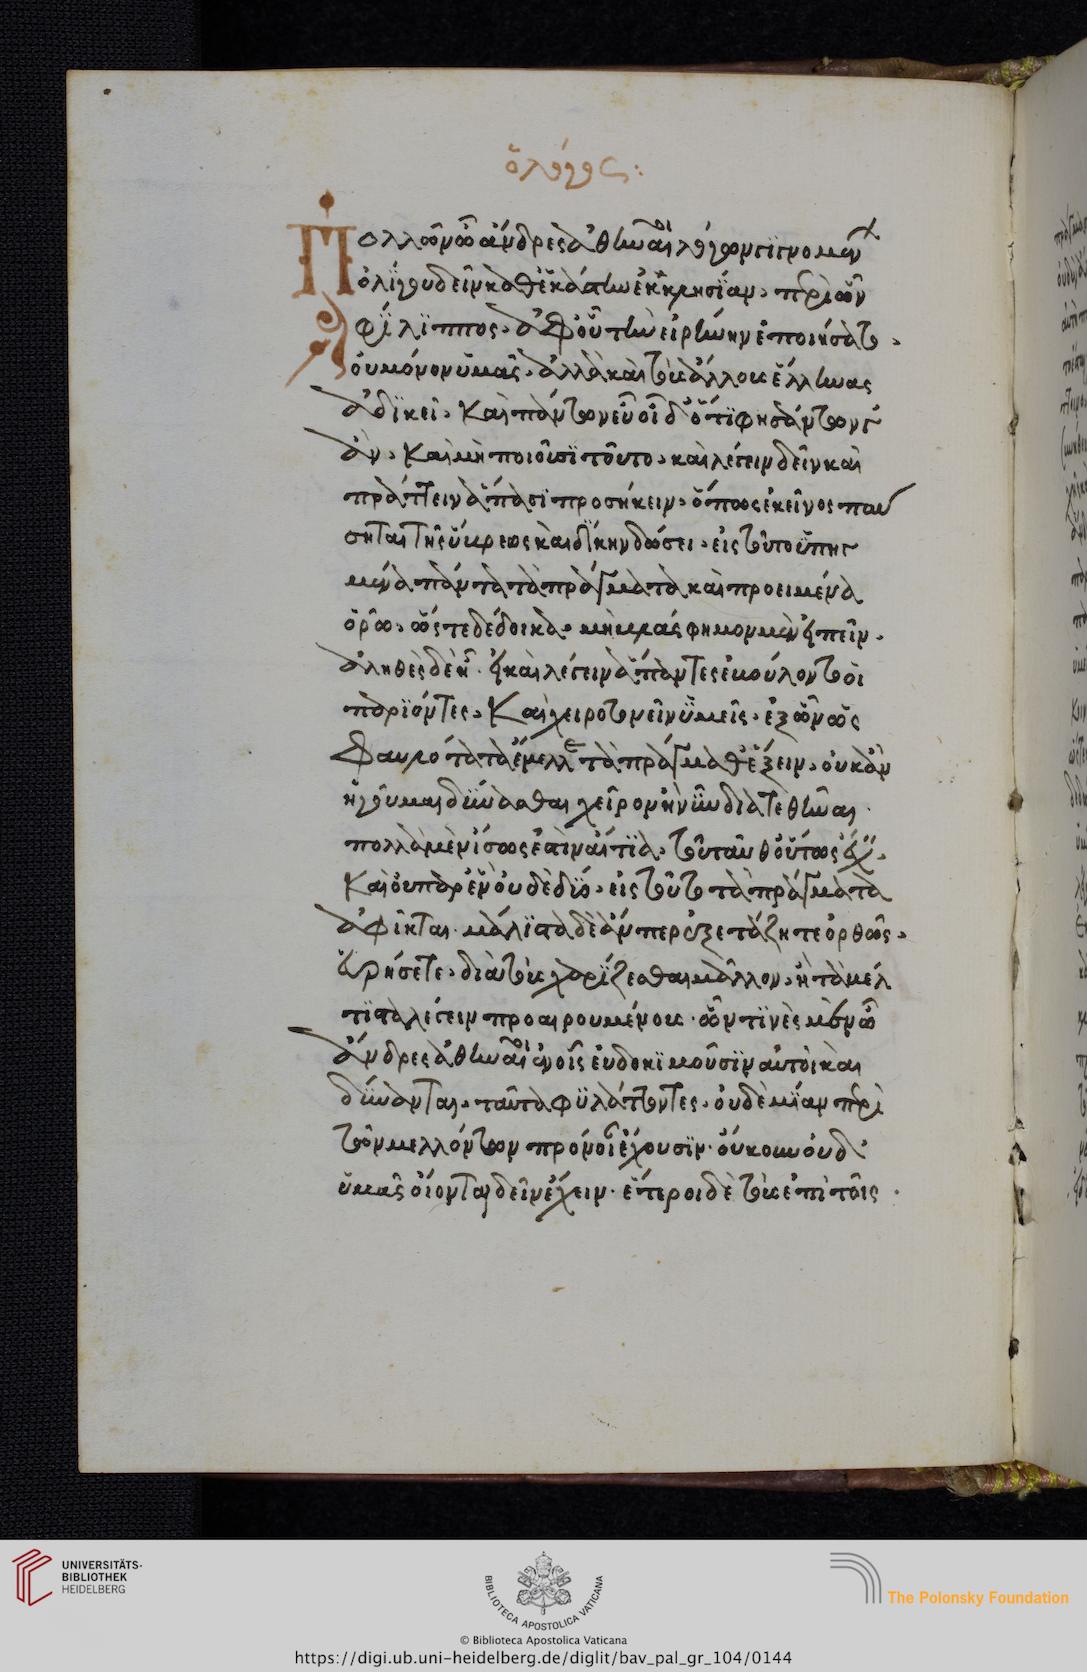 ὁ λόγος:
Πολλῶν ὦ ἄνδρες ἀθηναῖοι λόγων γιγνομέν
ὀλίγου δεῖν καθ' ἑκάστην ἐκκλησίαν, περὶ ὧν
φίλιππος, ἀφ' οὗ τὴν εἰρήνην ἐποιήσατο,
οὐ μόνον ὑμᾶς, ἀλλὰ καὶ τοὺς ἄλλους ἕλληνας
ἀδικεῖ, καὶ πάντων εὖ οἶδ' ὅτι φησάντων γ'
ἂν, καὶ μὴ ποιοῦσι τοῦτο, καὶ λέγειν δεῖν καὶ
πράττειν ἅπασι προσήκειν, ὅπως ἐκεῖνος παύ
σηται τῆς ὕβρεως καὶ δίκην δώσει, εἰς τοῦτο ὑπηγ
μένα πάντα τὰ πράγματα καὶ προειμένα
ὁρῶ, ὥστε δέδοικα, μὴ βλάσφημον μὲν εἰπεῖν,
ἀληθὲς δὲ ᾖ. εἰ καὶ λέγειν ἅπαντες ἐβούλοντο οἱ
παριόντες, καὶ χειροτονεῖν ὑμεῖς, ἐξ ὧν ὡς
φαυλότατα ἔμελλε τὰ πράγμαθ' ἕξειν, οὐκ ἂν
ἡγοῦμαι δύνασθαι χεῖρον ἢ νῦν διατεθῆναι.
πολλὰ μὲν ἴσως ἐστὶν αἴτια, τοῦ ταῦθ' οὕτως ἔχειν,
καὶ οὐ παρ' ἓν οὐδὲ δύο, εἰς τοῦτο τὰ πράγματα
ἀφῖκται. μάλιστα δὲ ἄνπερ ἐξετάζητε ὀρθῶς,
εὑρήσετε, διὰ τοὺς χαρίζεσθαι μᾶλλον, ἢ τὰ βέλ
τιστα λέγειν προαιρουμένους. ὧν τινὲς μὲν ὦ
ἄνδρες ἀθηναῖοι ἐν οἷς εὐδοκιμοῦσιν αὐτοὶ καὶ
δύνανται, ταῦτα φυλάττοντες, οὐδεμίαν περὶ
τῶν μελλόντων πρόνοιαν ἔχουσιν. οὐκοῦν οὐδ'
ὑμᾶς οἴονται δεῖν ἔχειν. ἕτεροι δὲ τοὺς ἐπὶ τοῖς
UNIVERSITÄTS-
BIBLIOTHEK
HEIDELBERG
BIBLIOTECA APOSTOLICA VATICANA
The Polonsky Foundation
© Biblioteca Apostolica Vaticana
https://digi.ub.uni-heidelberg.de/diglit/bav_pal_gr_104/0144